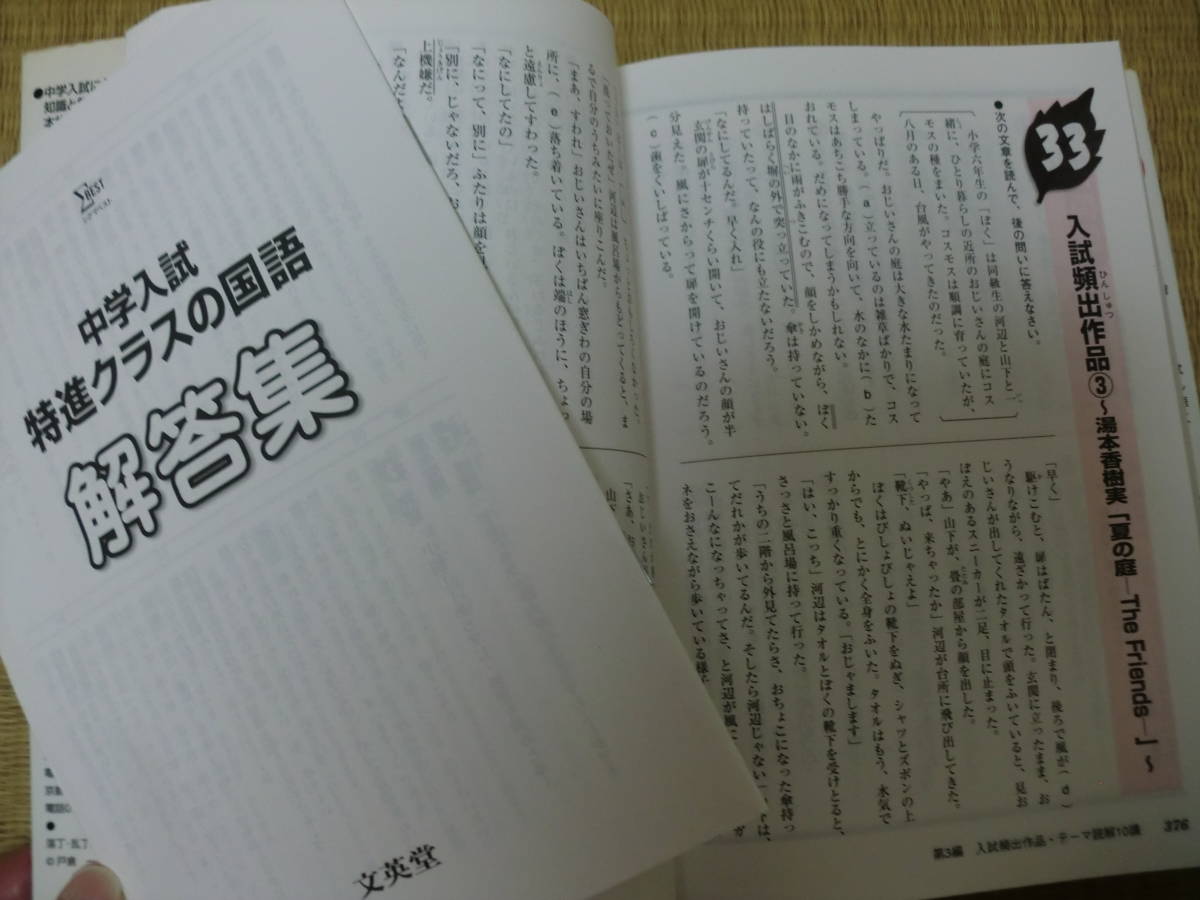 33
入試頻出作品③〜湯本香樹実「夏の庭―The Friends―」〜
ひんしゅつ
●次の文章を読んで、後の問いに答えなさい。
小学六年生の「ぼく」は同級生の河辺と山下と一
緒に、ひとり暮らしの近所のおじいさんの庭にコス
モスの種をまいた。コスモスは順調に育っていたが、
八月のある日、台風がやってきたのだった。
やっぱりだ。おじいさんの庭は大きな水たまりになって
しまっている。(a)立っているのは雑草ばかりで、コス
モスはあちこち勝手な方向を向いて、水のなかに(b)た
おれている。だめになってしまうかもしれない。
目のなかに雨がふきこむので、顔をしかめながら、ぼく
はしばらく塀の外で突っ立っていた。傘は持っていない。
持っていたって、なんの役にも立たないだろう。
「なにしてるんだ。早く入れ」
玄関の扉が十センチくらい開いて、おじいさんの顔が半
分見えた。風にさからって扉を開けているのだろう。
(c)歯をくいしばっている。
「早く」
駆けこむと、扉はばたん、と閉まり、後ろで風が(d)
うなりながら、遠ざかって行った。玄関に立ったまま、お
じいさんが出してくれたタオルで頭をふいていると、見お
ぼえのあるスニーカーが二足、目に止まった。
「やあ」山下が、畳の部屋から顔を出した。
「やっぱ、来ちゃったか」河辺が台所に飛び出してきた。
「靴下、ぬいじゃえよ」
ぼくはびしょびしょの靴下をぬぎ、シャツとズボンの上
からでも、とにかく全身をふいた。タオルはもう、水気で
すっかり重くなっている。「おじゃまします」
「はい、こっち」河辺はタオルとぼくの靴下を受けとると、
さっさと風呂場に持って行った。
「うちの二階から外見てたらさ、おちょこになった傘持っ
てだれかが歩いてるんだ。そしたら河辺じゃない
こーんなになっちゃってさ、と河辺が風に
ネをおさえながら歩いている様を
376
第3編 入試頻出作品・テーマ読解10講
るで自分のうちみたいに座りこんだ。
「まあ、すわれ」おじいさんはいちばん窓ぎわの自分の場
所に、(e)落ち着いている。ぼくは端のほうに、ちょっ
と遠慮してすわった。
「なにしてたの」
「なにって、別に」ふたりは顔を
「別に、じゃないだろ、お
上機嫌だ。
「さあ、お
山下
●中学入試に
YBEST
シグマベスト
中学入試
特進クラスの国語
解答集
文英堂
電話
●
落丁・乱丁
©戸